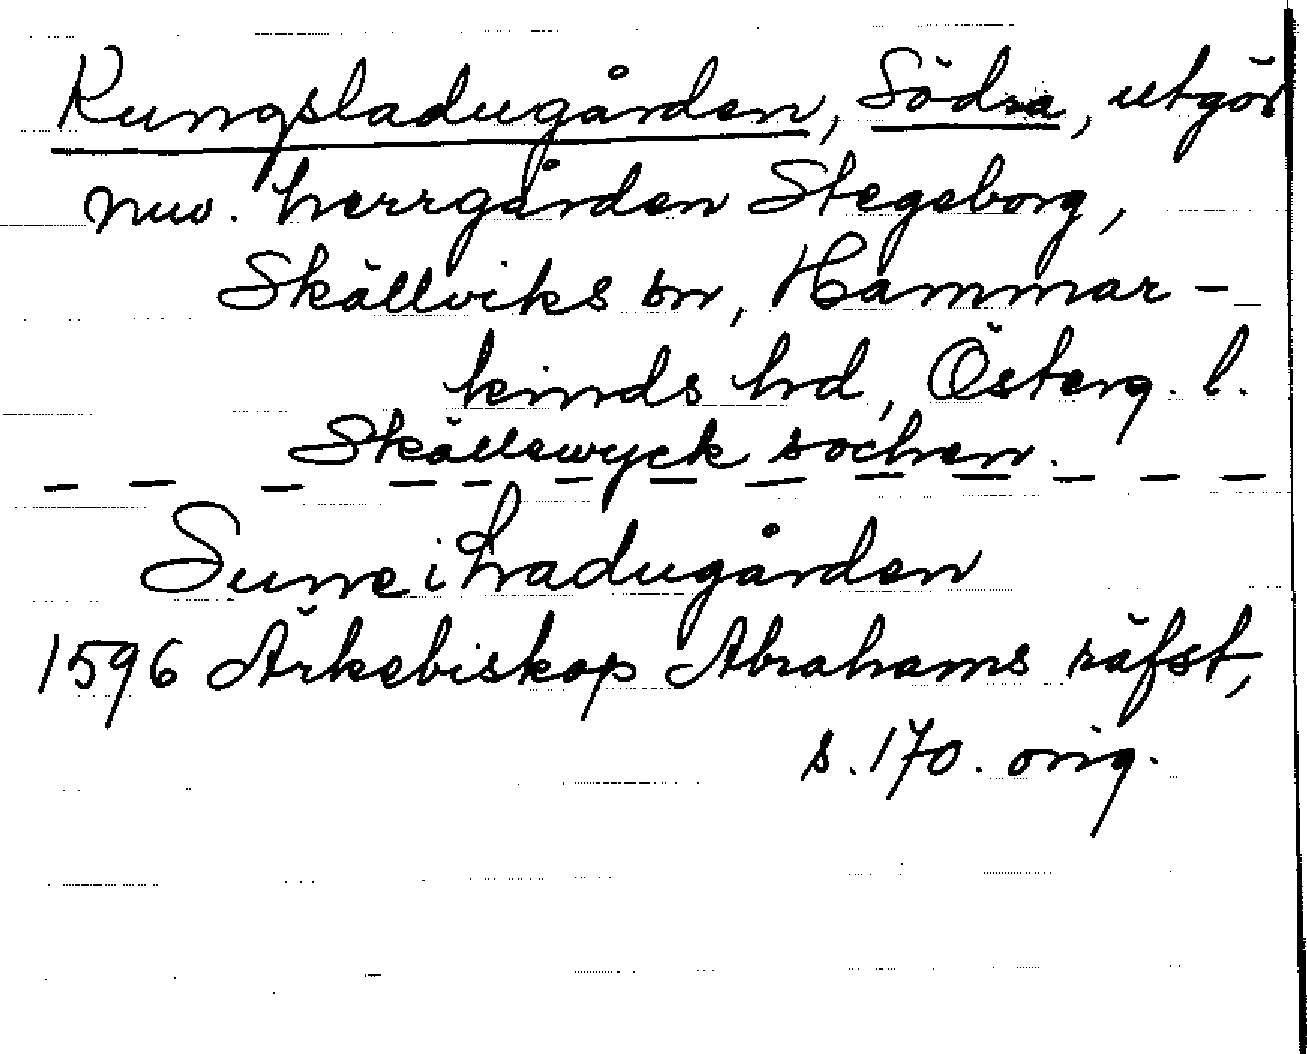 Kungsladugården, Södra, utgör
nuv. herrgården Stegeborg,
Skällviks sn, Hammar-
kinds hd, Österg. l.
Skällewyck sochen.
Sune i Ladugården
1596 Ärkebiskop Abrahams räfst,
s. 170. orig.